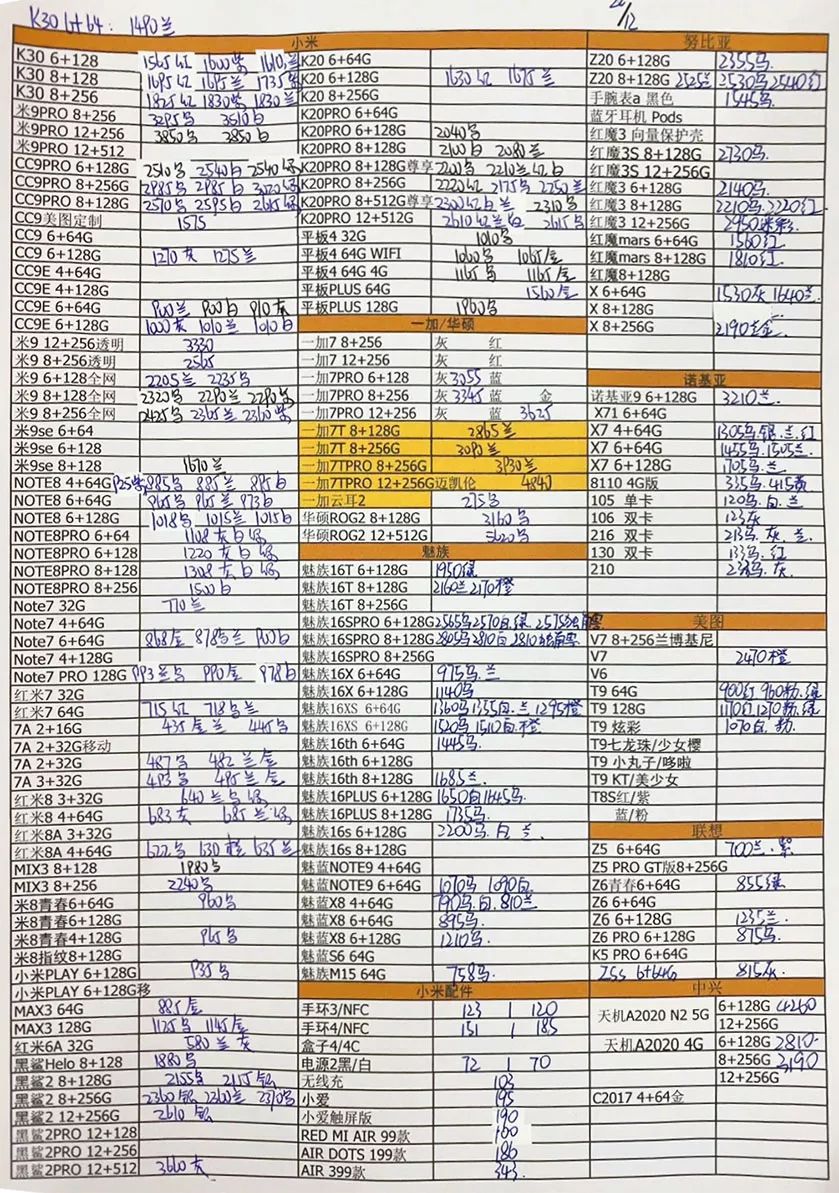 K30 6+64: 1490兰
26/12
小米
K30 6+128 1565红 1600紫 1610兰
K30 8+128 1695红 1695兰 1735紫
K30 8+256 1825红 1830紫 1830兰
米9PRO 8+256 3295马 3510白
米9PRO 12+256 3850马 3850白
米9PRO 12+512
CC9PRO 6+128G 2510马 2540白 2540绿
CC9PRO 8+256G 2985马 2985白 3020绿
CC9PRO 8+128G 2570马 2595白 2615绿
CC9美图定制 1575
CC9 6+64G
CC9 6+128G 1270灰 1275兰
CC9E 4+64G
CC9E 4+128G
CC9E 6+64G 900兰 900白 910灰
CC9E 6+128G 1000灰 1010兰 1010白
米9 12+256透明 3330
米9 8+256透明 2565
米9 6+128全网 2205兰 2235马
米9 8+128全网 2320马 2290兰 2290紫
米9 8+256全网 2425马 2365兰 2360紫
米9se 6+64
米9se 6+128
米9se 8+128 1670兰
NOTE8 4+64G 925紫 885马 885兰 895白
NOTE8 6+64G 965马 965兰 973白
NOTE8 6+128G 1018马 1015兰 1015白
NOTE8PRO 6+64 1108灰白绿
NOTE8PRO 6+128 1220灰白绿
NOTE8PRO 8+128 1308灰白绿
NOTE8PRO 8+256 1500白
Note7 32G 770兰
Note7 4+64G
Note7 6+64G 868金 878马兰 900白
Note7 4+128G
Note7 PRO 128G 993兰马 990金 978白
红米7 32G
红米7 64G 715红 718马兰
7A 2+16G 435金兰 445马
7A 2+32G移动
7A 2+32G 487马 482兰金
7A 3+32G 493马 495兰金
红米8 3+32G 640兰马绿
红米8 4+64G 683灰 685兰绿
红米8A 3+32G
红米8A 4+64G 622马 630橙 635兰
MIX3 8+128 1980马
MIX3 8+256 2240马
米8青春6+64G 960马
米8青春6+128G
米8青春4+128G 965马
米8指纹8+128G
小米PLAY 6+128G 935马
小米PLAY 6+128G移
MAX3 64G 885金
MAX3 128G 1125马 1145金
红米6A 32G 580兰灰
黑鲨Helo 8+128 1880马
黑鲨2 8+128G 2155马 2155银
黑鲨2 8+256G 2360银 2360兰 2370马
黑鲨2 12+256G 2610银
黑鲨2PRO 12+128
黑鲨2PRO 12+256
黑鲨2PRO 12+512 3660灰
K20 6+64G
K20 6+128G 1630红 1675兰
K20 8+256G
K20PRO 6+64G
K20PRO 6+128G 2040马
K20PRO 8+128G 2100白 2080兰
K20PRO 8+128G尊享 2200马 2210红白
K20PRO 8+256G 2220红 2175马 2250兰
K20PRO 8+512G尊享 2300红白兰 2310马
K20PRO 12+512G 2610红兰白 2615马
平板4 32G 1010马
平板4 64G WIFI 1060马 1065金
平板4 64G 4G 1165马 1165金
平板PLUS 64G 1560金
平板PLUS 128G 1960马
一加/华硕
一加7 8+256 灰 红
一加7 12+256 灰 红
一加7PRO 6+128 灰3055 蓝
一加7PRO 8+256 灰3345 蓝 金
一加7PRO 12+256 灰 蓝 3625
一加7T 8+128G 2865兰
一加7T 8+256G 3090兰
一加7TPRO 8+256G 3930兰
一加7TPRO 12+256G迈凯伦 4840
一加云耳2 275马
华硕ROG2 8+128G 3160马
华硕ROG2 12+512G 5620马
魅族
魅族16T 6+128G 1950绿
魅族16T 8+128G 2160兰2170橙
魅族16T 8+256G
魅族16SPRO 6+128G 2565马2570白.绿
魅族16SPRO 8+128G 2805马2810白
魅族16SPRO 8+256G
魅族16X 6+64G 975马.兰
魅族16X 6+128G 1140马
魅族16XS 6+64G 1360马1355白.兰 1295橙
魅族16XS 6+128G 1520马1510白.橙
魅族16th 6+64G 1445马.
魅族16th 6+128G
魅族16th 8+128G 1685兰.
魅族16PLUS 6+128G 1650白1645马.
魅族16PLUS 8+128G 1735马.
魅族16s 6+128G 2200马.白.兰.
魅族16s 8+128G
魅蓝NOTE9 4+64G
魅蓝NOTE9 6+64G 1070马 1090白.
魅蓝X8 4+64G 790马.白.810兰
魅蓝X8 6+64G 895马.
魅蓝X8 6+128G 1210马.
魅蓝S6 64G
魅族M15 64G 758马.
小米配件
手环3/NFC 123 | 120
手环4/NFC 151 | 185
盒子4/4C
电源2黑/白 72 | 70
无线充 103
小爱 195
小爱触屏版 190
RED MI AIR 99款 160
AIR DOTS 199款 186
AIR 399款 343.
努比亚
Z20 6+128G 2355马.
Z20 8+128G 2525兰 2530马2540红
手腕表a 黑色 1545马.
蓝牙耳机 Pods
红魔3 向量保护壳
红魔3S 8+128G 2730马.
红魔3S 12+256G
红魔3 6+128G 2140马.
红魔3 8+128G 2210马.2220红
红魔3 12+256G 2950迷彩.
红魔mars 6+64G 1560红
红魔mars 8+128G 1810红.
红魔8+128G
X 6+64G 1530灰 1640兰.
X 8+128G
X 8+256G 2190兰金.
诺基亚
诺基亚9 6+128G 3210兰.
X71 6+64G
X7 4+64G 1305马.银.兰.红
X7 6+64G 1455马.1505兰.
X7 6+128G 1705马.兰
8110 4G版 335马.415黄.
105 单卡 120马.白.兰
106 双卡 123灰
216 双卡 213马.灰.兰
130 双卡 133马.红
210 238马.灰.
美图
V7 8+256兰博基尼
V7 2470橙
V6
T9 64G 900红 960粉.绿
T9 128G 1170白1270粉.绿
T9 炫彩 1070白.粉.
T9七龙珠/少女樱
T9 小丸子/哆啦
T9 KT/美少女
T8S红/紫
蓝/粉
联想
Z5 6+64G 700兰.紫
Z5 PRO GT版8+256G
Z6青春6+64G 855绿
Z6 6+64G
Z6 6+128G 1235兰.
Z6 PRO 6+128G 875马.
K5 PRO 6+64G
Z5s 6+64G 815灰.
中兴
天机A2020 N2 5G 6+128G 4260
12+256G
天机A2020 4G 6+128G 2810-
8+256G 3190
12+256G
C2017 4+64金